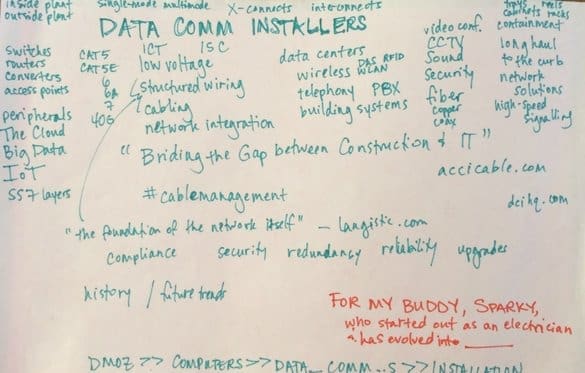 inside plant single-mode multimode X-connects interconnects trays reels
outside plant cabinets racks
DATA COMM INSTALLERS
video conf. containment
switches CAT5 ICT ISC data centers CCTV long haul
routers CAT5E low voltage DAS RFID Sound to the curb
converters 6 structured wiring wireless WLAN Security network
access points 6a cabling telephony PBX fiber solutions
peripherals 7 network integration building systems copper high-speed
The Cloud 40G coax signalling
Big Data
"Briding the Gap between Construction & IT"
IoT
SS7 layers
#cablemanagement
accicable.com
dcihq.com
"the foundation of the network itself" - langistic.com
compliance security redundancy reliability upgrades
history / future trends
FOR MY BUDDY, SPARKY,
who started out as an electrician
^ has evolved into ______
DMOZ >> COMPUTERS >> DATA_COMM..S >> INSTALLATION